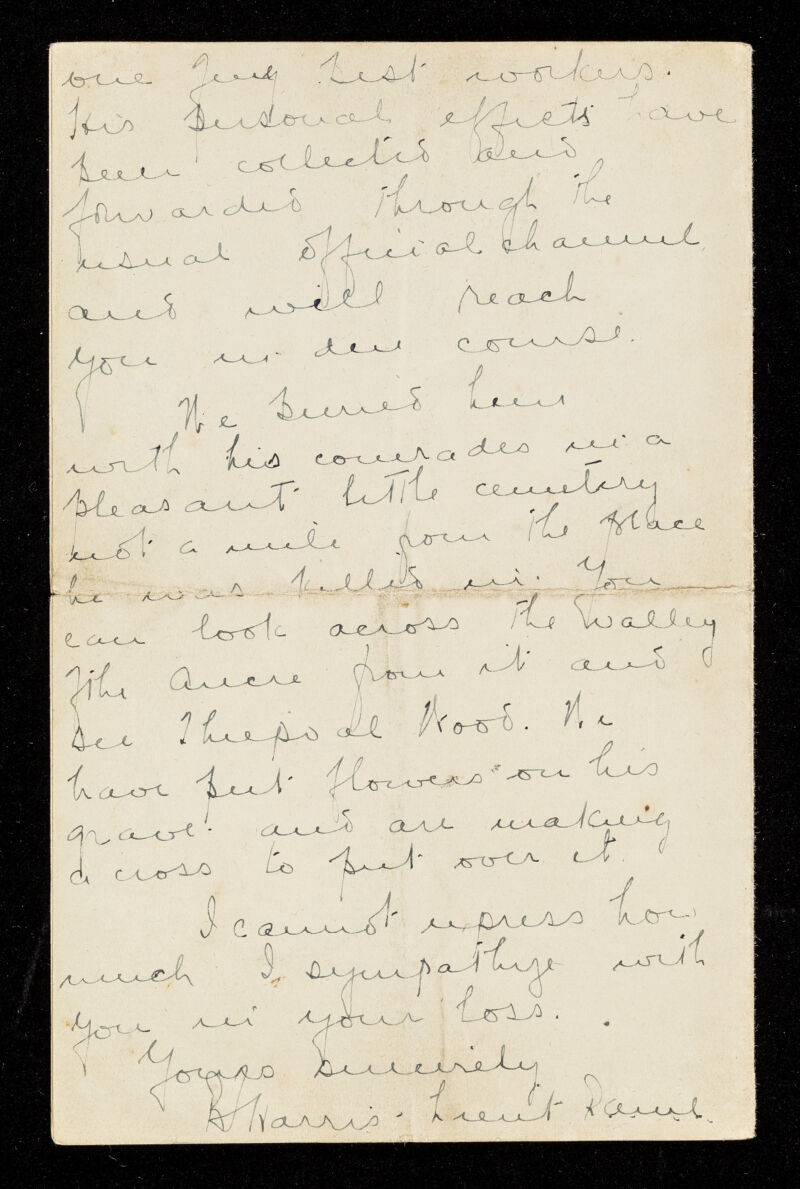 one of my best workers.
His personal effects have
been collected and
forwarded through the
usual official channel
and will reach
you in due course.
We buried him
with his comrades in a
pleasant little cemetery
not a mile from the place
he was killed in. You
can look across the valley
of the Ancre from it and
see Thiepval Wood. We
have put flowers on his
grave. and are making
a cross to put over it.
I cannot express how
much I sympathize with
you in your loss.
Yours sincerely
Harris. Lieut